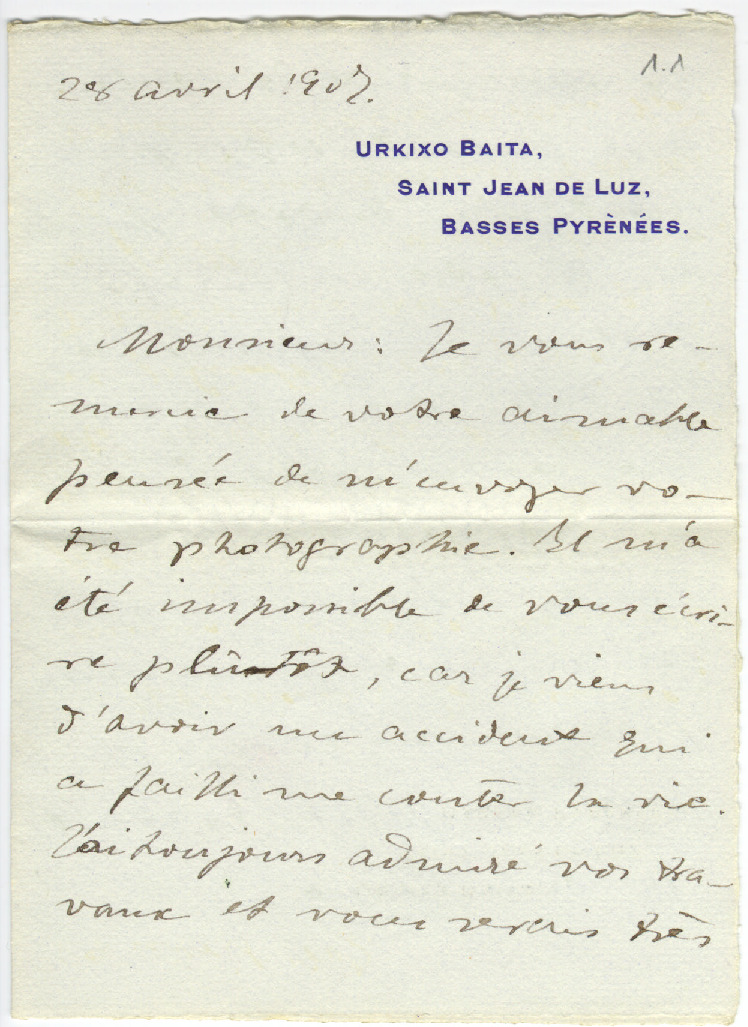 28 avril 1907.
1.1
URKIXO BAITA,
SAINT JEAN DE LUZ,
BASSES PYRÈNÉES.
Monsieur: Je vous re-
mercie de votre aimable
pensée de m'envoyer vo-
tre photographie. Il m'a
été impossible de vous écri-
re plûtôt, car je viens
d'avoir un accident qui
a failli me couter la vie.
J'ai toujours admiré vos tra-
vaux et vous serais très